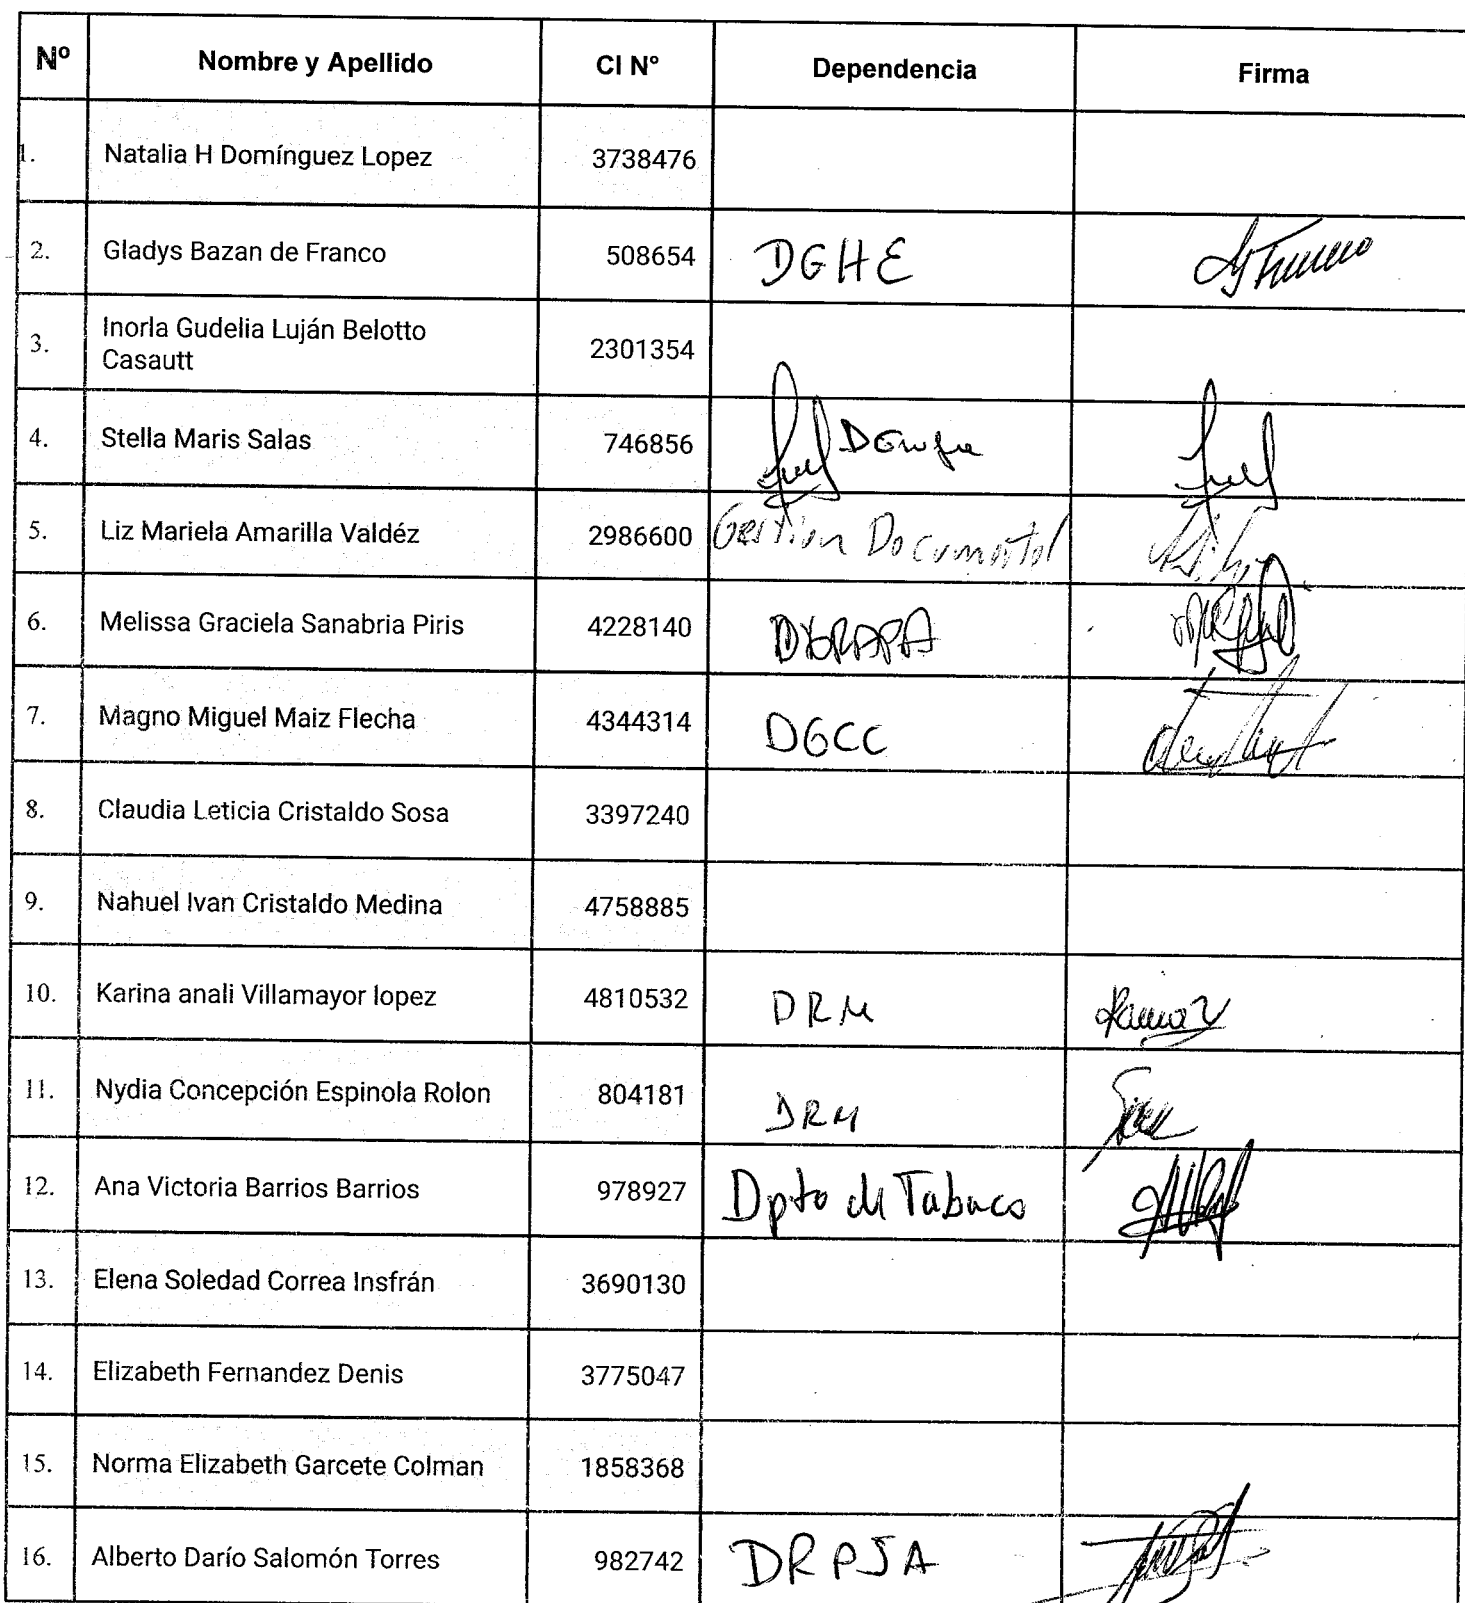 Nº Nombre y Apellido CI N° Dependencia Firma
1. Natalia H Domínguez Lopez 3738476
2. Gladys Bazan de Franco 508654 DGHE
3. Inorla Gudelia Luján Belotto
Casautt 2301354
4. Stella Maris Salas 746856
5. Liz Mariela Amarilla Valdéz 2986600 Gestion Documental
6. Melissa Graciela Sanabria Piris 4228140
7. Magno Miguel Maiz Flecha 4344314 DGCC
8. Claudia Leticia Cristaldo Sosa 3397240
9. Nahuel Ivan Cristaldo Medina 4758885
10. Karina anali Villamayor lopez 4810532 DRM
11. Nydia Concepción Espinola Rolon 804181 DRM
12. Ana Victoria Barrios Barrios 978927 Dpto de Tabaco
13. Elena Soledad Correa Insfrán 3690130
14. Elizabeth Fernandez Denis 3775047
15. Norma Elizabeth Garcete Colman 1858368
16. Alberto Darío Salomón Torres 982742 DRPJA